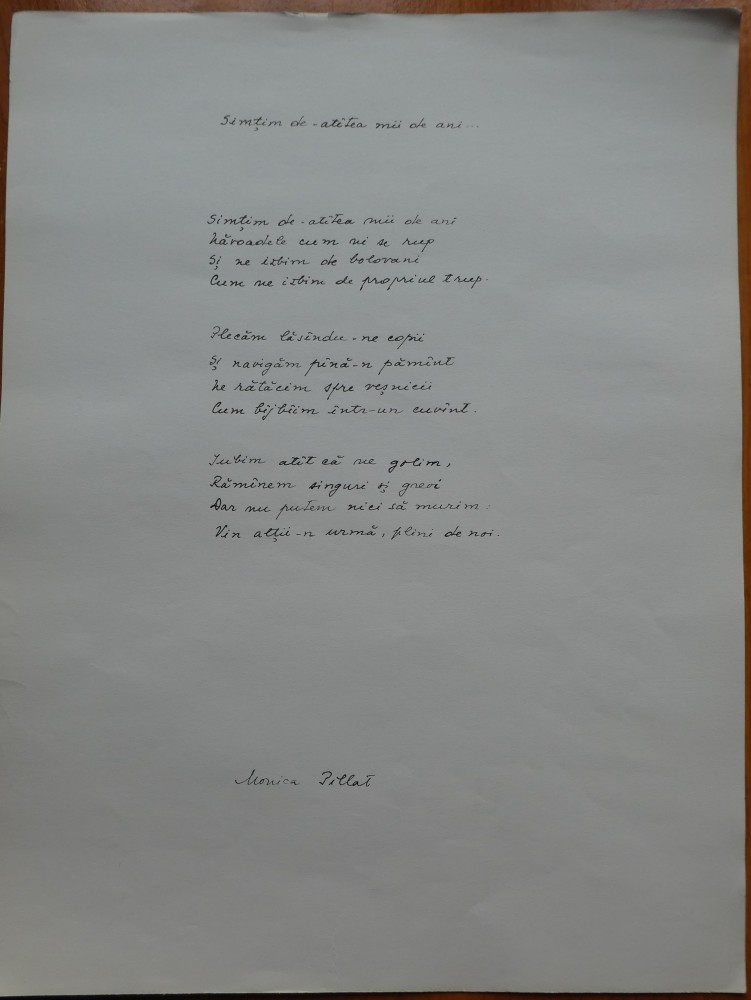 Simțim de-atîtea mii de ani...
Simțim de-atîtea mii de ani
Năvoadele cum ni se rup
Și ne izbim de bolovani
Cum ne izbim de propriul trup.
Plecăm lăsîndu-ne copii
Și navigăm pînă-n pămînt
Ne rătăcim spre veșnicii
Cum bîjbîim într-un cuvînt.
Iubim atît că ne golim,
Rămînem singuri și greoi
Dar nu putem nici să murim:
Vin alții-n urmă, plini de noi.
Monica Pillat